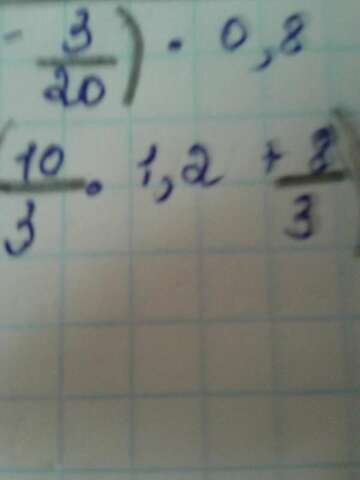 - 3/20) · 0,8
(10/3 · 1,2 + 8/3)